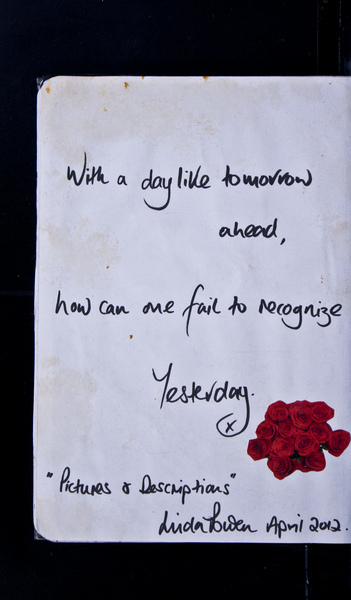 With a day like tomorrow
ahead,
how can one fail to recognize
Yesterday.
x
"Pictures & Descriptions"
Linda Rowen April 2012.